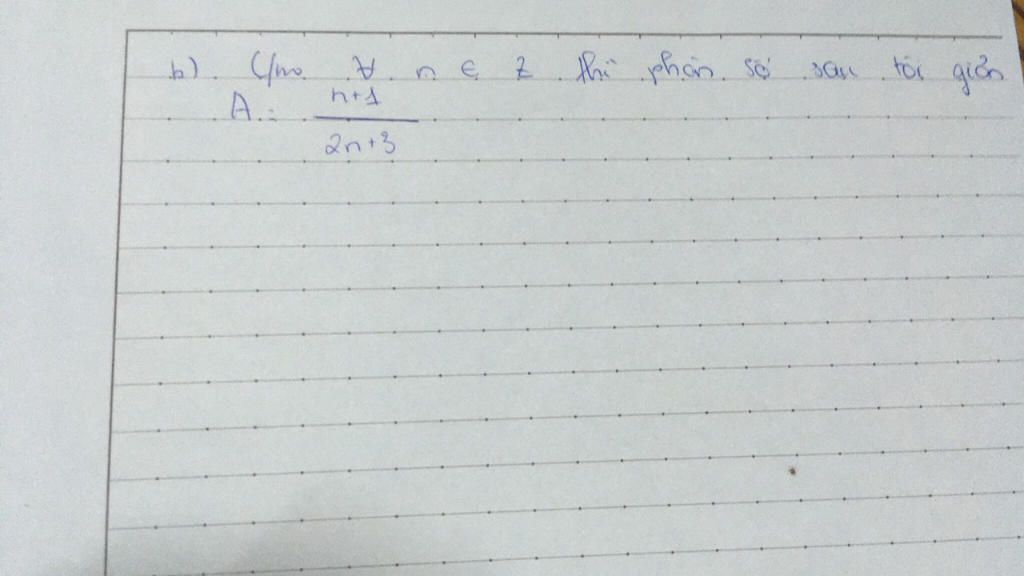 b) C/m ∀ n ∈ Z thì phân số sau tối giản
A = n+1
2n+3